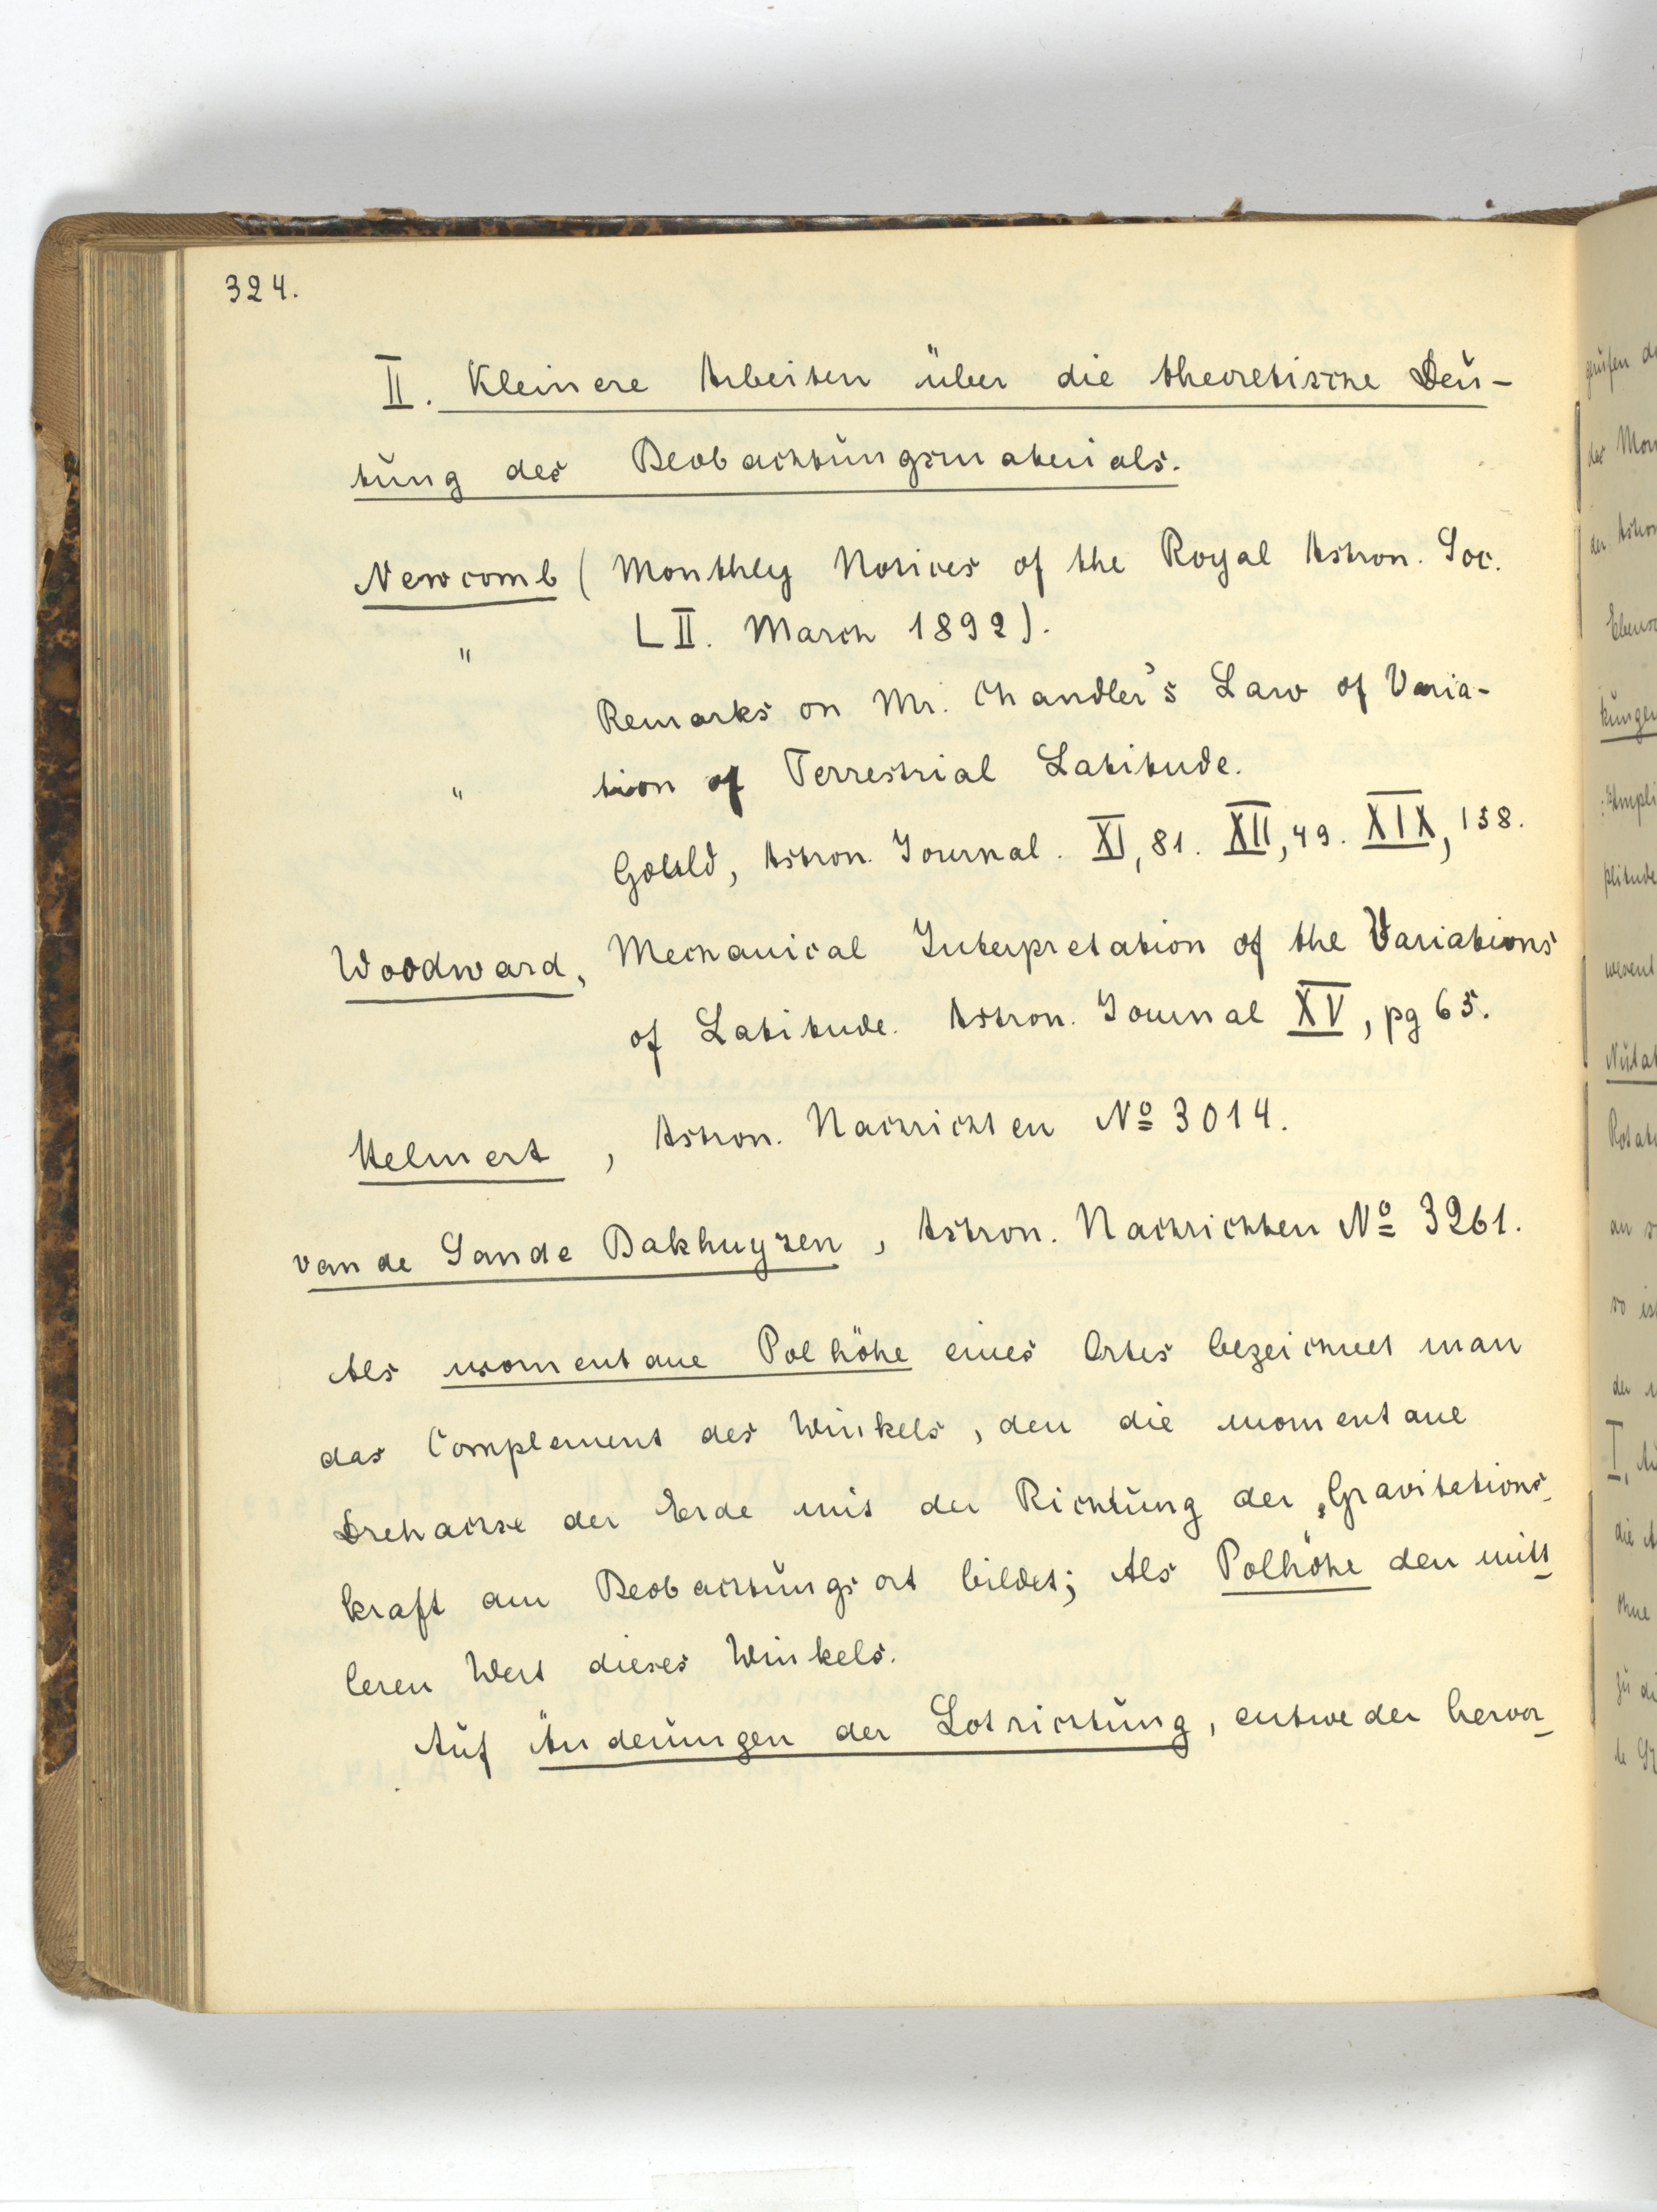 324.
II. Kleinere Arbeiten über die theoretische Deu-
tung des Beobachtungsmaterials.
Newcomb (Monthly Notices of the Royal Astron. Soc.
" LII. March 1892).
Remarks on Mr. Chandler's Law of Varia-
" tion of Terrestrial Latitude.
Gould, Astron. Journal. XI, 81. XII, 49. XIX, 158.
Woodward, Mechanical Interpretation of the Variations
of Latitude. Astron. Journal XV, pg 65.
Helmert, Astron. Nachrichten No 3014.
van de Sande Bakhuyzen, Astron. Nachrichten No 3261.
Als momentane Polhöhe eines Ortes bezeichnet man
das Complement des Winkels, den die momentane
Drehachse der Erde mit der Richtung der Gravitations-
kraft am Beobachtungsort bildet; Als Polhöhe den mitt-
leren Wert dieses Winkels.
Auf Änderungen der Lotrichtung, entweder hervor-
der Mon
der Astron
kungen
I.